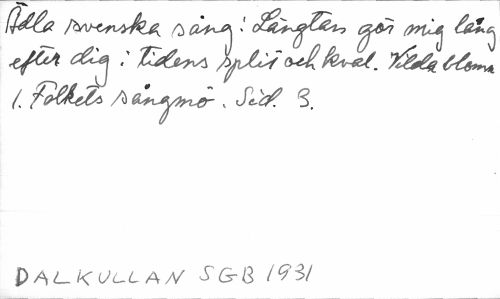 Ädla svenska sång! Längtan gör mig lång
efter dig i tidens split och kval. Vilda blomm
1. Folkets sångmö. Sid. 3.
DALKULLAN SGB 1931